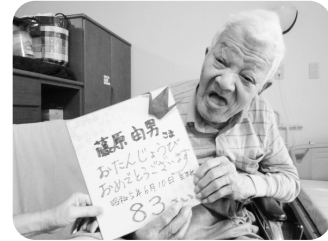 藤原由男さま
おたんじょうび
おめでとうございます
昭和5年6月10日 生まれ
83さい